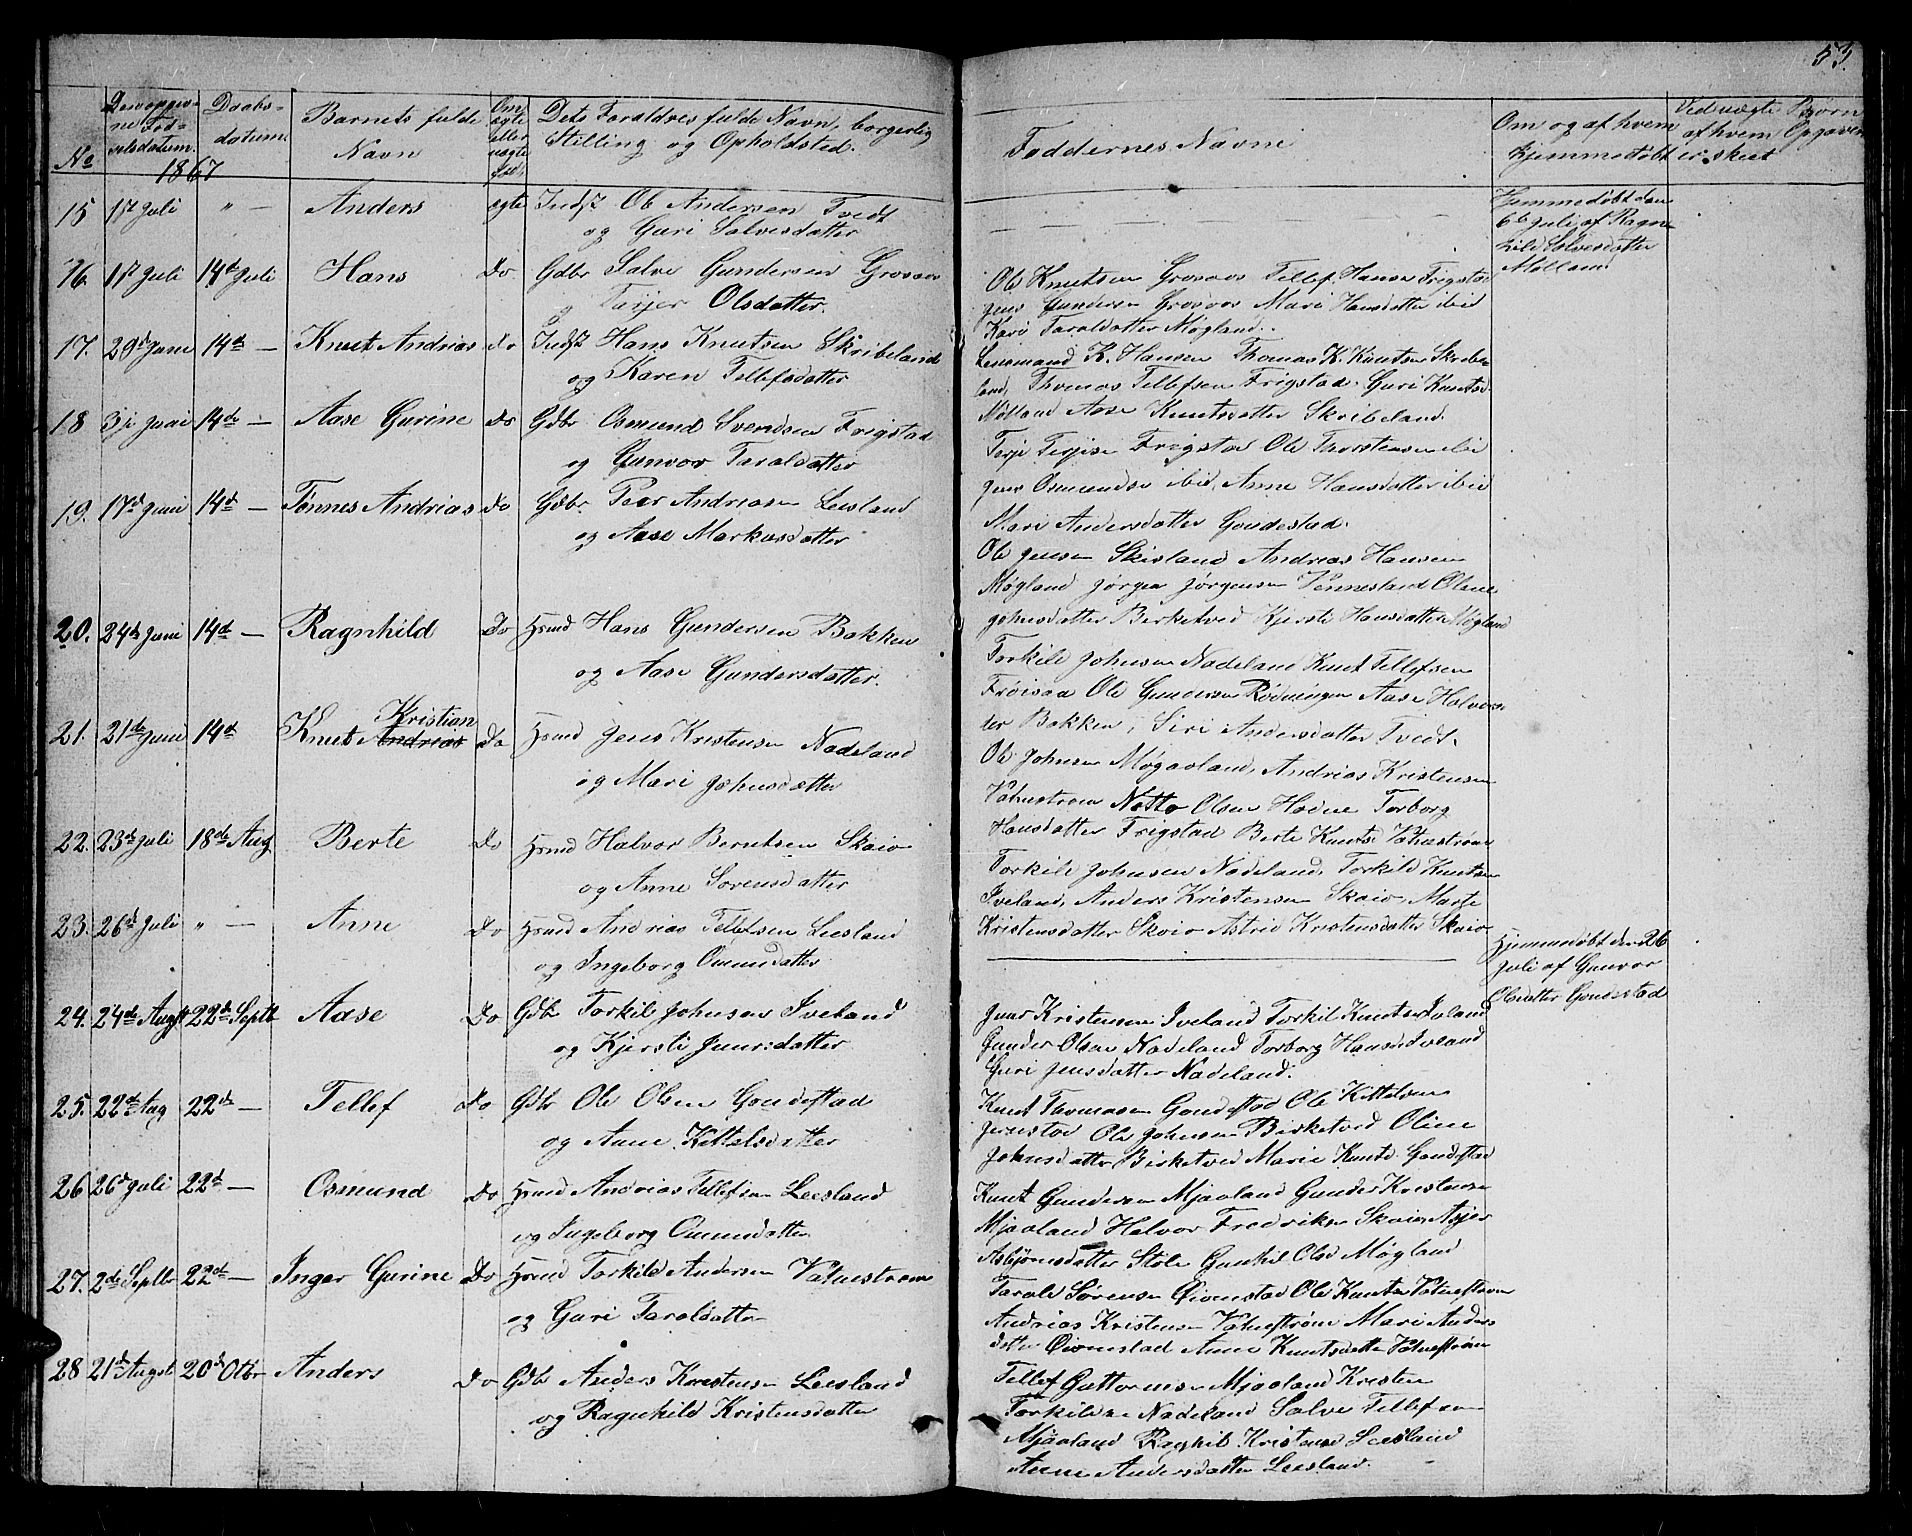 53.
No
1867
Daabs-
datum.
Barnets fulde
Navn
Om
ægte
eller
uægte
Dets Foraldres fulde Navn, borgerlig
Stilling og Opholdsted.
Faddernes Navne
Om og af hvem
hjemmedøbt
Ved uægte Børn
af hvem Opgaven
er skeet
15 1st Juli " — Anders ægte Indst Ole Andersen Tvedt
og Guri Salvesdatter
Hjemmedøbt den
6te Juli af Ragn
hild Salvesdatter
16. 1st Juli 14de Juli Hans Do Gdbr Salve Gundersen Grosaas
og Tarjer Olsdatter.
Ole Knutsen Grosaas Tellef Hansen Frigstad
Jens Gundersen Grosaas Mari Hansdatter ibid
Kari Taraldatter Møgland.
17. 29d Juni 14de — Knut Andrias do Indst Hans Knutsen Skribeland
og Karen Tellefsdatter
Lensmand K. Hansen Thomas K. Knutsen Skribe
land, Thomas Tellefsen Frigstad. Guri Knuts
Aase Knutsdatter Skribeland
18 14de — Aase Gurine Do Gdbr Osmund Svendsen Frigstad
og Gunvor Taraldatter
Terje Terjese Frigstad Ole Thorstensen ibi
Jens Osmundse ibid, Anne Hansdatter ibid
Mari Andersdatter Gondestad.
19. 17d Juni 14de — Tønnes Andrias Do Gdbr. Peer Andriasen Leesland
og Aase Markusdatter
Ole Jensen Skisland Andrias Hansen
Møgland Jørgen Jørgensen Vennesland Oline
Johnsdatter Birketved Kjersti Hansdatter Møgland
20. 24de Juni 14de — Ragnhild Do Hsmd Hans Gundersen Bakken
og Aase Gundersdatter.
Torkild Johnsen Nadeland Knut Tellefsen
Frøisaa Ole Gundersen Rødningen Aase Halvors
der Bakken, Siri Andersdatter Tvedt.
21. 21de Juni 14de Knut Andrias Kristian Do Hsmd Jens Kristensen Nadeland
og Mari Johnsdatter
Ole Johnsen Møgaaland, Andrias Kristensen
Vatnestrøm Olsen Torborg
Hansdatter Frigstad Berte Knuts Vatnestrøm
22. 23de Juli 18de Aug Berte Do Hsmd Halvor Berntsen Skaio
og Anne Sørensdatter
Torkild Johnsen Nadeland, Torkild Knutsen
Iveland, Anders Kristensen Skaio, Marte
Kristensdatter Skaio Astrid Kristensdatter Skaio
23. 26de Juli " — Anne Do Hsmd Andrias Tellefsen Leesland
og Ingeborg Omundsdatter
Hjemmedøbt den 26
Juli af Gunvor
Olsdatter Gondestad
24. 24de Augst 22de Septb Aase Do Gdbr Torkil Johnsen Iveland
og Kjersti Jensdatter
Jens Kristensen Iveland Torkil Knutsen Iveland
Gunder Olsen Nadeland Torborg Hansd Iveland
Guri Jensdatter Nadeland.
25. 22de Aug 22de — Tellef Do Gdbr Ole Olsen Gondestad
og Anne Kittelsdatter
Knut Thomasen Gondestad Ole Kittelsen
Ole Johnsen Birketved Oline
Johnsdatter Birketved Marie Knuts Gondestad
26 26d Juli 22de — Osmund Do Hsmd Andrias Tellefsen Leesland
og Ingeborg Omundsdatter
Knut Gundersen Mjaaland Gunder Kristensen
Mjaaland Halvor Fredriksen Skaio Asjer
Asbjørnsdatter Stole Gunhil Olsd Møgland
27. 2de Septbr 22de — Inger Gurine Do Hsmd Torkild Andersen Vatnestrøm
og Guri Taraldatter
Tarald Sørensen Øvonstad Ole Knutsen Vatnestrøm
Andrias Kristensen Vatnestrøm Mari Anders
datter Øvonstad Anne Knutsdatter Vatnestrøm
28 21de Augst 20de Otbr Anders Do Gdbr Anders Kristensen Leesland
og Ragnhild Kristensdatter
Tellef Guttormsen Mjaaland Kristen
Torkildsen Nadeland Salve Tellefsen
Mjaaland Raghil Kristense Leesland
Anne Andersdatter Leesland.